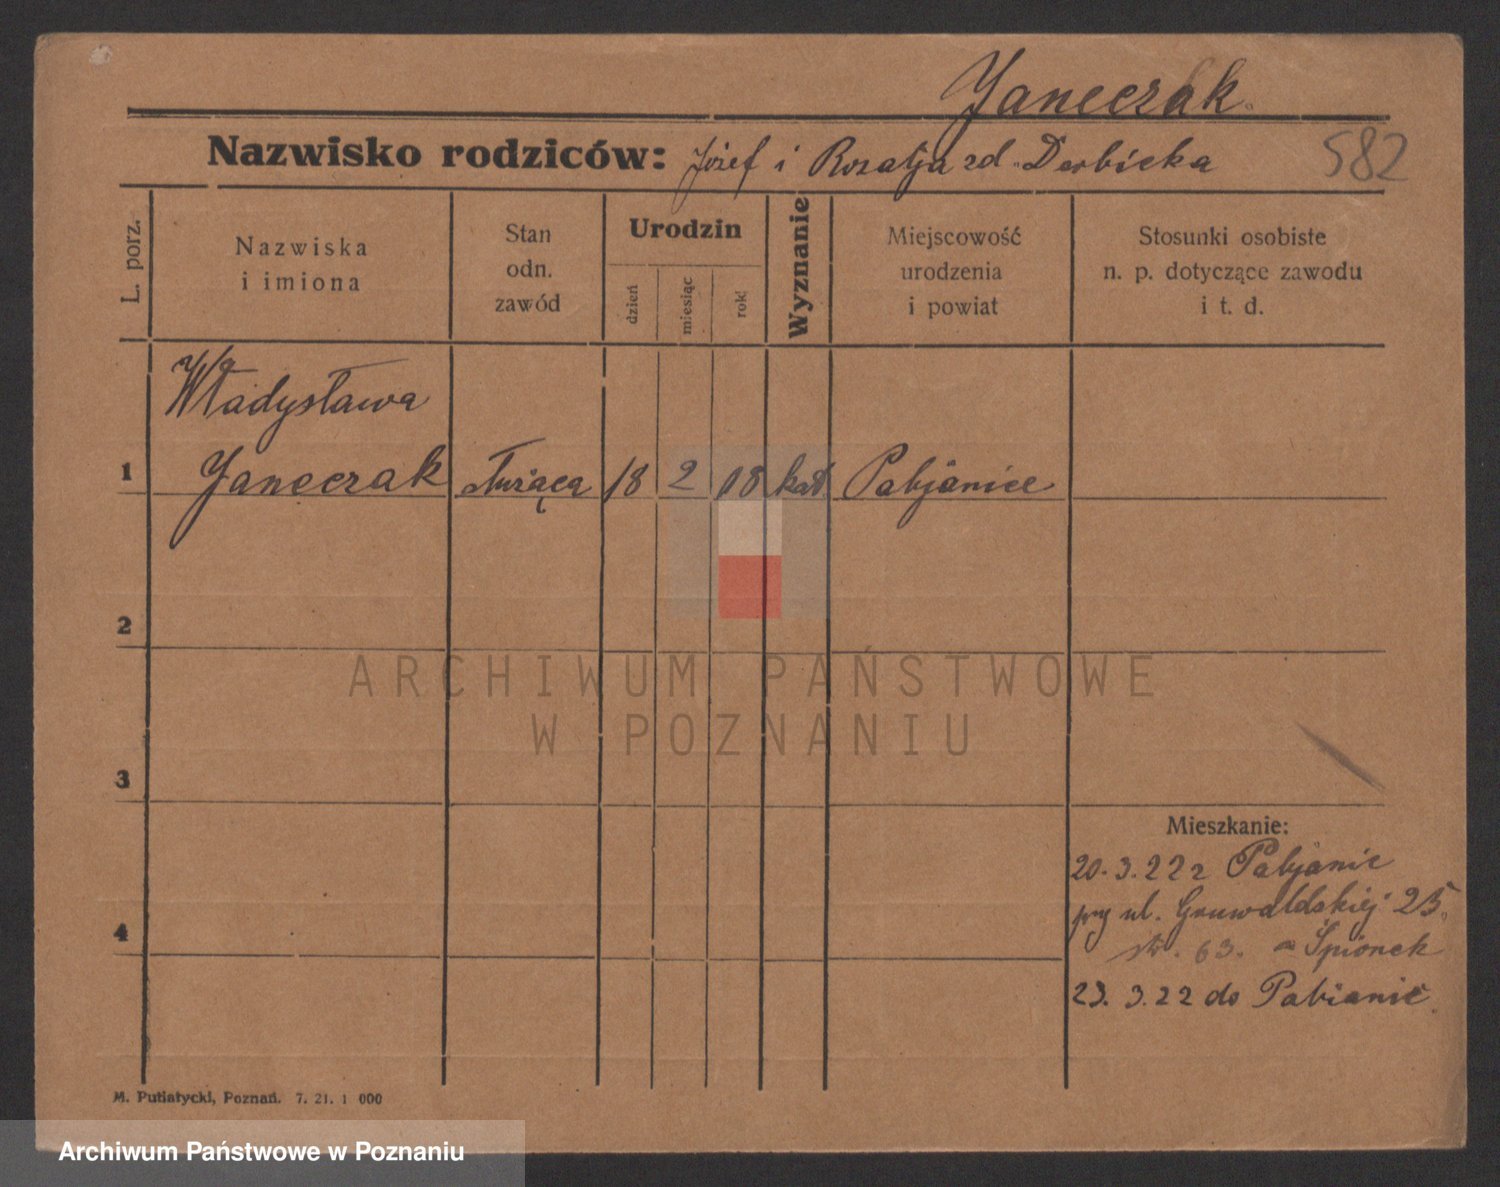 Janeczak.
Nazwisko rodziców: Józef i Rozalja zd. Derbicka
582
L. porz.
Nazwiska
i imiona
Stan
odn.
zawód
Urodzin
dzień
miesiąc
rok
Wyznanie
Miejscowość
urodzenia
i powiat
Stosunki osobiste
n. p. dotyczące zawodu
i t. d.
Władysława
1 Janeczak służąca 18 2 18 kat. Pabjanice
2
ARCHIWUM PAŃSTWOWE
W POZNANIU
3
Mieszkanie:
20.3.22 z Pabjanic
przy ul. Grunwaldzkiej 25.
63. Śpionek
4
23. 3.22 do Pabianic.
M. Putiatycki, Poznań. 7. 21. 1 000
Archiwum Państwowe w Poznaniu